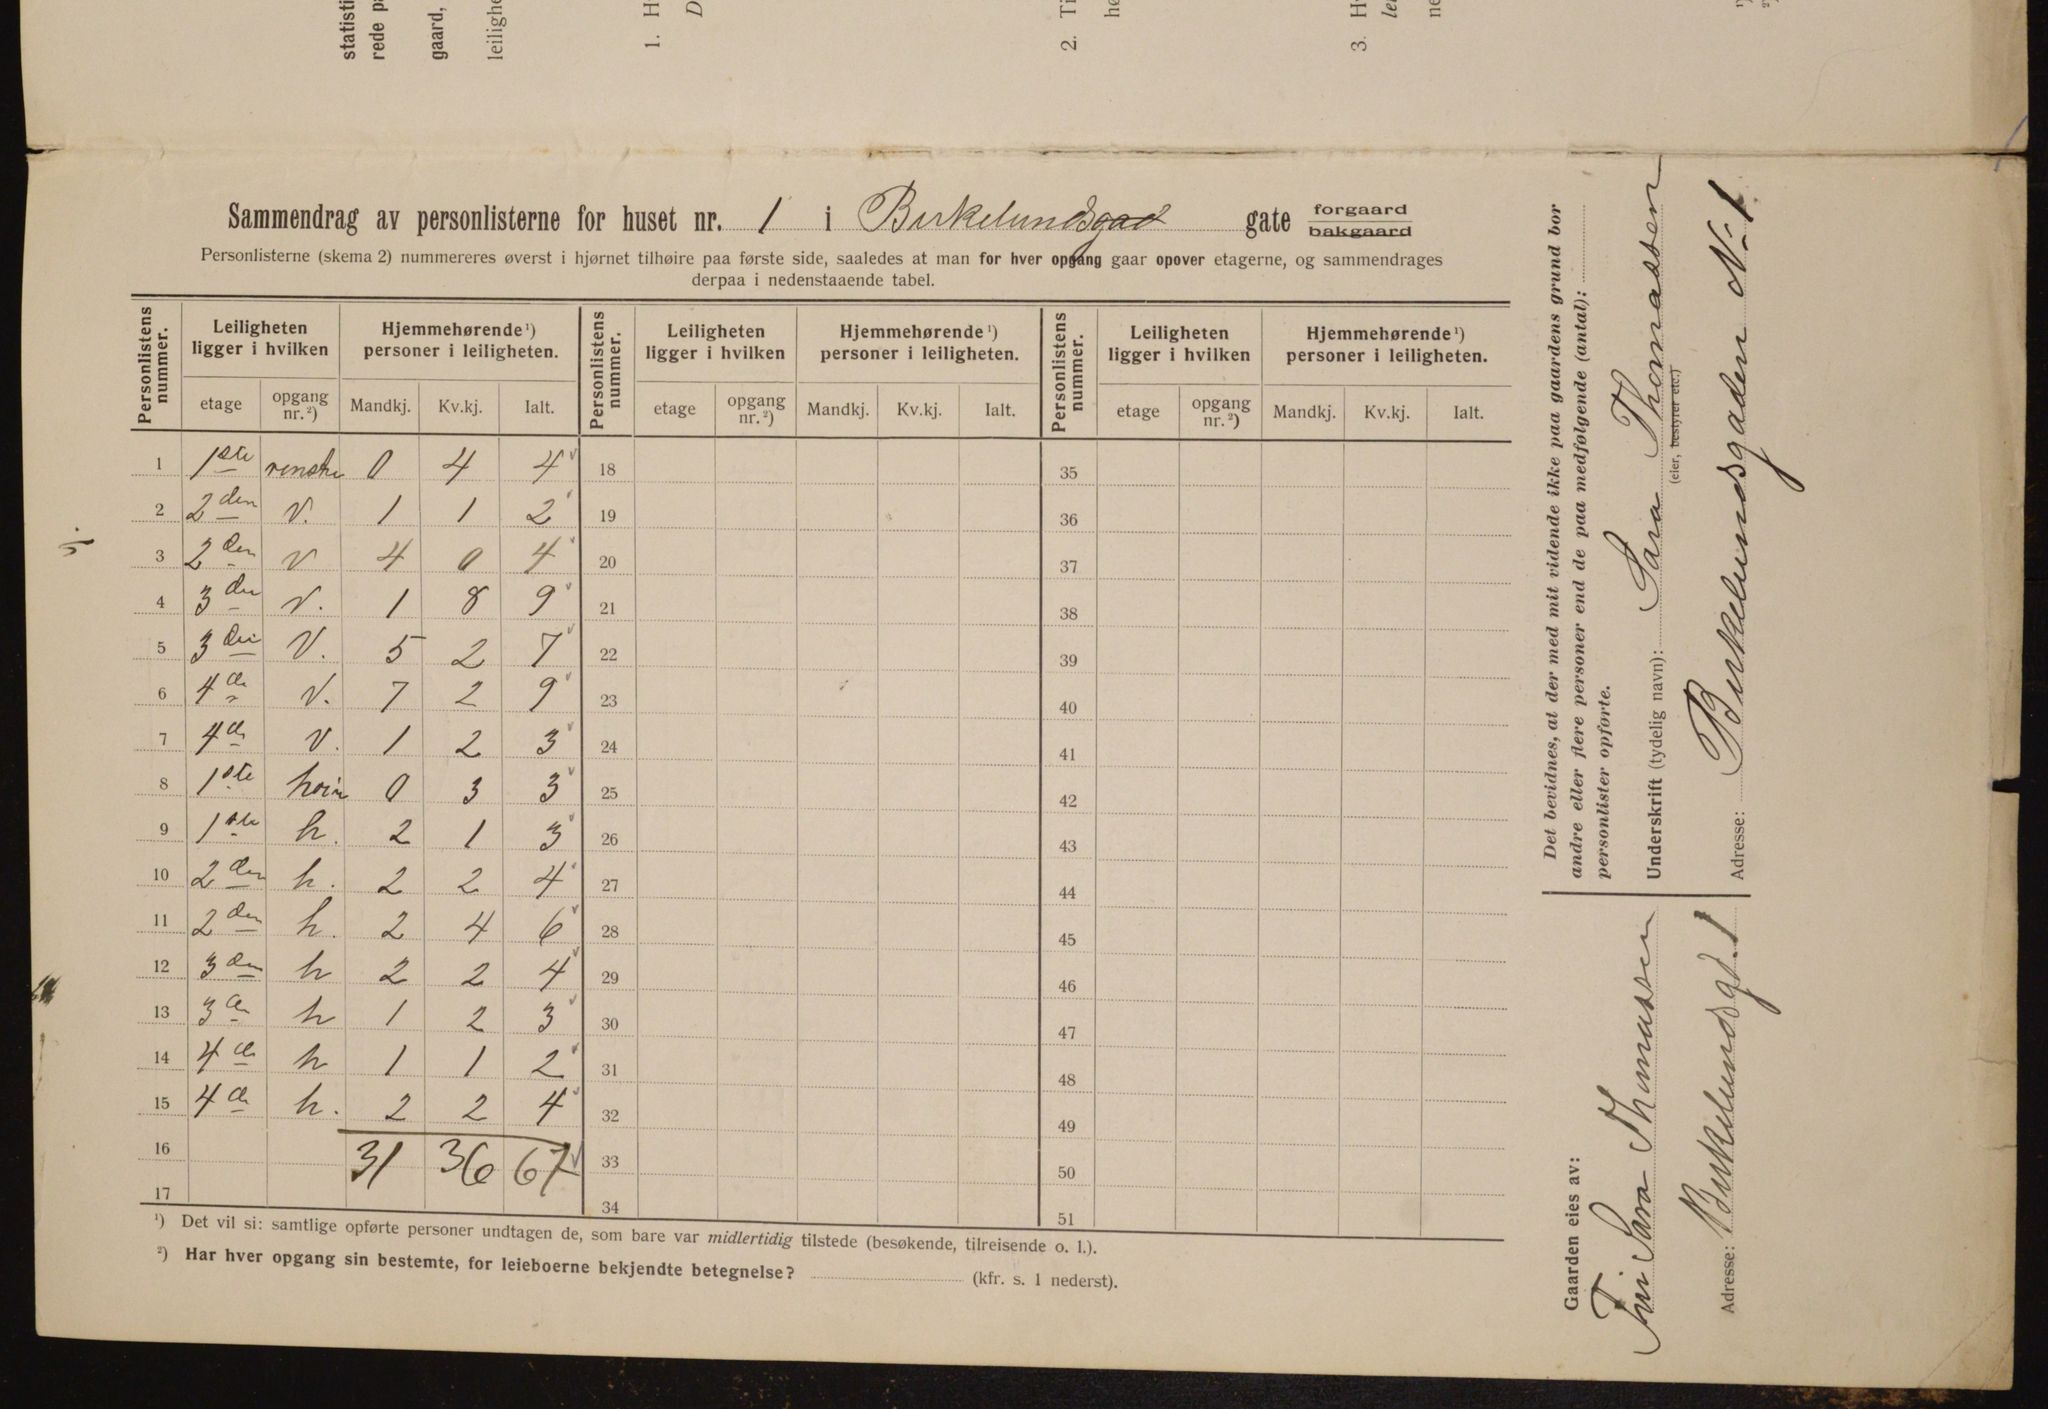 statisti
rede pa
gaard,
leilighe
1. H
D
2. Ti
hø
3. H
lei
ne
Sammendrag av personlisterne for huset nr. 1 i Birkelundsgad gate forgaard bakgaard
Personlisterne (skema 2) nummereres øverst i hjørnet tilhøire paa første side, saaledes at man for hver opgang gaar opover etagerne, og sammendrages
derpaa i nedenstaaende tabel.
Personlistens nummer. Leiligheten ligger i hvilken Hjemmehørende ¹) personer i leiligheten. Personlistens nummer. Leiligheten ligger i hvilken Hjemmehørende ¹) personer i leiligheten. Personlistens nummer. Leiligheten ligger i hvilken Hjemmehørende ¹) personer i leiligheten.
etage opgang nr. ²) Mandkj. Kv.kj. Ialt. etage opgang nr. ²) Mandkj. Kv.kj. Ialt. etage opgang nr. ²) Mandkj. Kv.kj. Ialt.
1 1ste venstre 0 4 4 18 35
2 2den v. 1 1 2 19 36
3 2den v 4 0 4 20 37
4 3die v. 1 8 9 21 38
5 3die v. 5 2 7 22 39
6 4de v. 7 2 9 23 40
7 4de v. 1 2 3 24 41
8 1ste høire 0 3 3 25 42
9 1ste h. 2 1 3 26 43
10 2den h. 2 2 4 27 44
11 2den h. 2 4 6 28 45
12 3den h 2 2 4 29 46
13 3de h 1 2 3 30 47
14 4de h 1 1 2 31 48
15 4de h. 2 2 4 32 49
16 31 36 67 33 50
17 34 51
¹) Det vil si: samtlige opførte personer undtagen de, som bare var midlertidig tilstede (besøkende, tilreisende o. l.).
²) Har hver opgang sin bestemte, for leieboerne bekjendte betegnelse? (kfr. s. 1 nederst).
Det bevidnes, at der med mit vidende ikke paa gaardens grund bor
andre eller flere personer end de paa medfølgende (antal):
personlister opførte.
Underskrift (tydelig navn): Sara Thomassen
(eier, bestyrer etc.)
Adresse: Birkelundsgaden No 1.
Gaarden eies av:
Sara Thomassen
Adresse: Birkelundsgd. 1